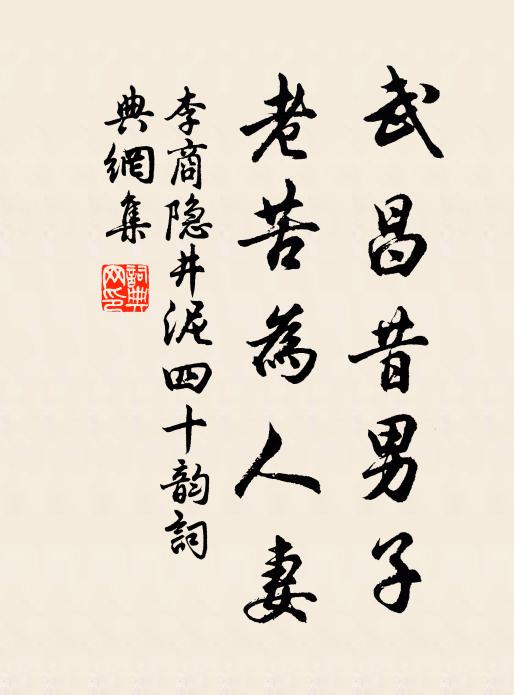 武昌昔男子
老苦為人妻
李商隐井泥四十韵詞
典網集
詞典網印